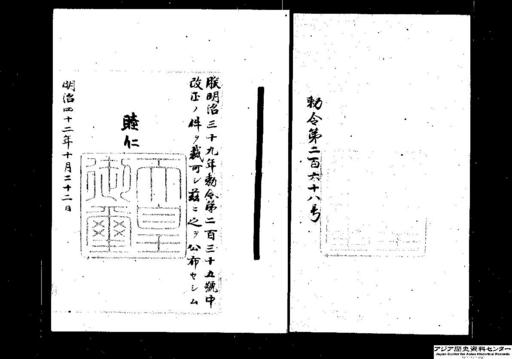 勅令第二百六十八号
朕明治三十九年勅令第二百三十五號中
改正ノ件ヲ裁可シ茲ニ之ヲ公布セシム
睦仁
天皇
御璽
明治四十二年十月二十二日
アジア歴史資料センター
Japan Center for Asian Historical Records